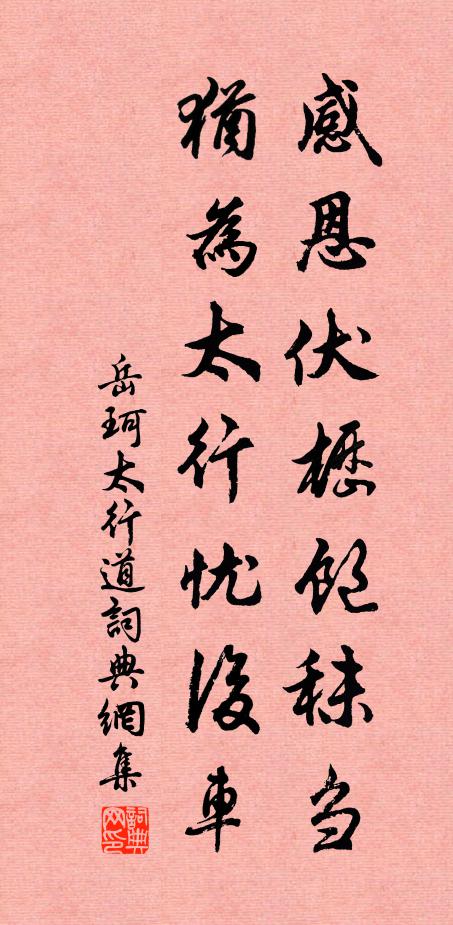 感恩伏櫪飽秣刍
猶為太行忧後車
岳珂太行道詞典網集
詞典网印